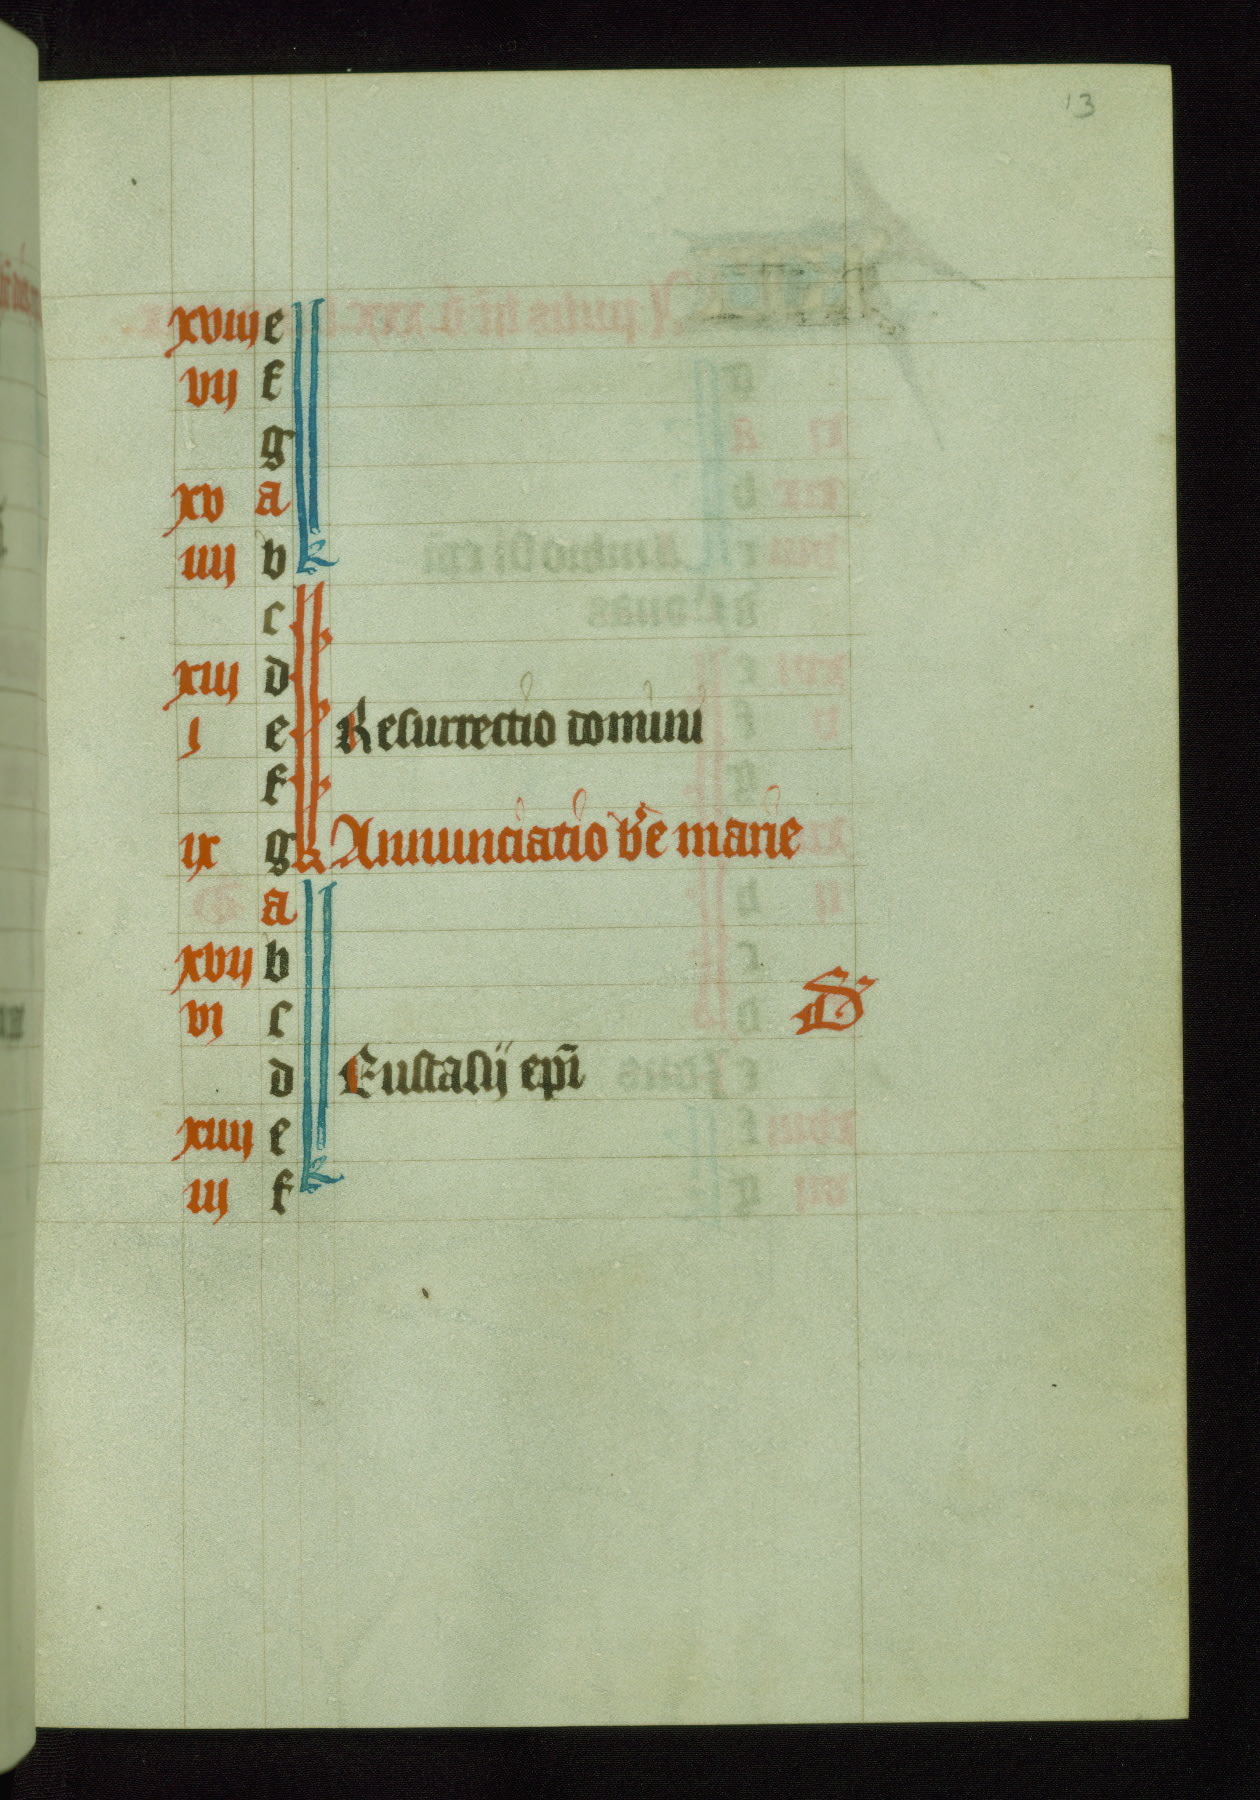 13
xviij e
vij f
g
xv a
iiij b
c
xiij d
j e Resurrectio domini
f
ix g Annunciatio b̄e marie
a
xvij b
vi c D
d Eustasij ep̄i
xiiij e
iij f